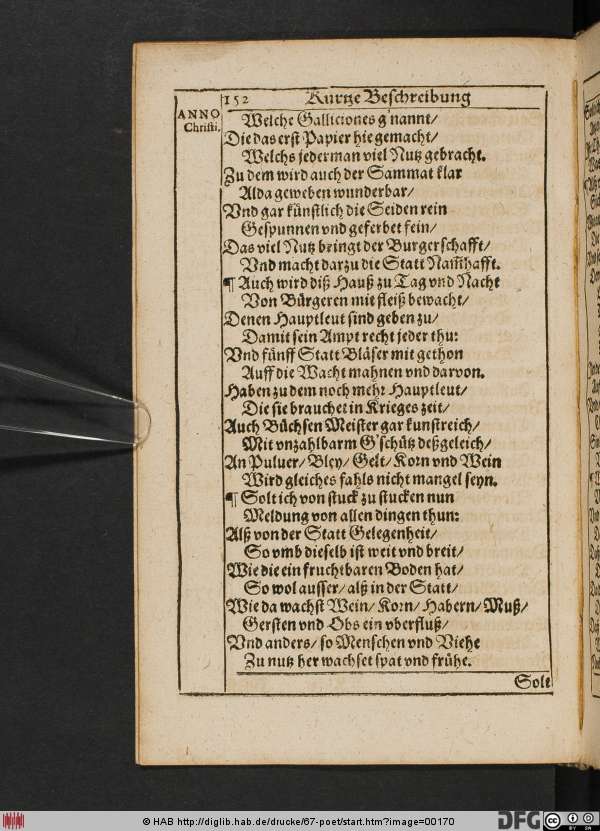 152 Kurtze Beschreibung
ANNO
Christi.
Welche Galliciones g'nannt/
Die das erst Papier hie gemacht/
Welchs jederman viel Nutz gebracht.
Zu dem wird auch der Sammat klar
Alda geweben wunderbar/
Vnd gar künstlich die Seiden rein
Gespunnen vnd geferbet fein/
Das viel Nutz bringt der Burgerschafft/
Vnd macht darzu die Statt Nam̃hafft.
¶ Auch wird diß Hauß zu Tag vnd Nacht
Von Bürgeren mit fleiß bewacht/
Denen Hauptleut sind geben zu/
Damit sein Ampt recht jeder thu:
Vnd fünff Statt Bläser mit gethon
Auff die Wacht mahnen vnd darvon.
Haben zu dem noch mehr Hauptleut/
Die sie brauchet in Krieges zeit/
Auch Büchsen Meister gar kunstreich/
Mit vnzahlbarm G'schütz deßgeleich/
An Puluer/ Bley/ Gelt/ Korn vnd Wein
Wird gleiches fahls nicht mangel seyn.
¶ Solt ich von stuck zu stucken nun
Meldung von allen dingen thun:
Alß von der Statt Gelegenheit/
So vmb dieselb ist weit vnd breit/
Wie die ein fruchtbaren Boden hat/
So wol ausser/ alß in der Statt/
Wie da wachst Wein/ Korn/ Habern/ Muß/
Gersten vnd Obs ein vberfluß/
Vnd anders/ so Menschen vnd Viehe
Zu nutz her wachset spat vnd frühe.
Solt
© HAB http://diglib.hab.de/drucke/67-poet/start.htm?image=00170
DFG
CC BY SA